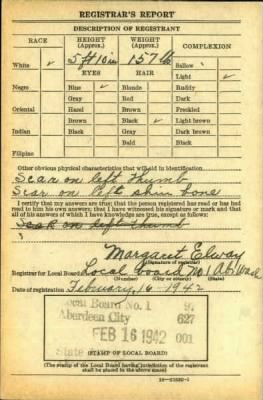 REGISTRAR'S REPORT
DESCRIPTION OF REGISTRANT
RACE HEIGHT (Approx.) WEIGHT (Approx.) COMPLEXION
White ✓ 5 ft 10 in 157 lb Sallow
EYES HAIR Light ✓
Negro Blue ✓ Blonde Ruddy
Gray Red Dark
Oriental Hazel Brown Freckled
Brown Black ✓ Light brown
Indian Black Gray Dark brown
Bald Black
Filipino
Other obvious physical characteristics that will aid in identification
Scar on left thumb
Scar on left shin bone
I certify that my answers are true; that the person registered has read or has had
read to him his own answers; that I have witnessed his signature or mark and that
all of his answers of which I have knowledge are true, except as follows:
Scar on left thumb
Margaret Elway
(Signature of registrar)
Registrar for Local Board Local board No 1 Ab Wash
(Number) (City or county) (State)
Date of registration February, 16 - 1942
Local Board No. 1
Aberdeen City 627
FEB 16 1942 001
State
(STAMP OF LOCAL BOARD)
(The stamp of the Local Board having jurisdiction of the registrant
shall be placed in the above space)